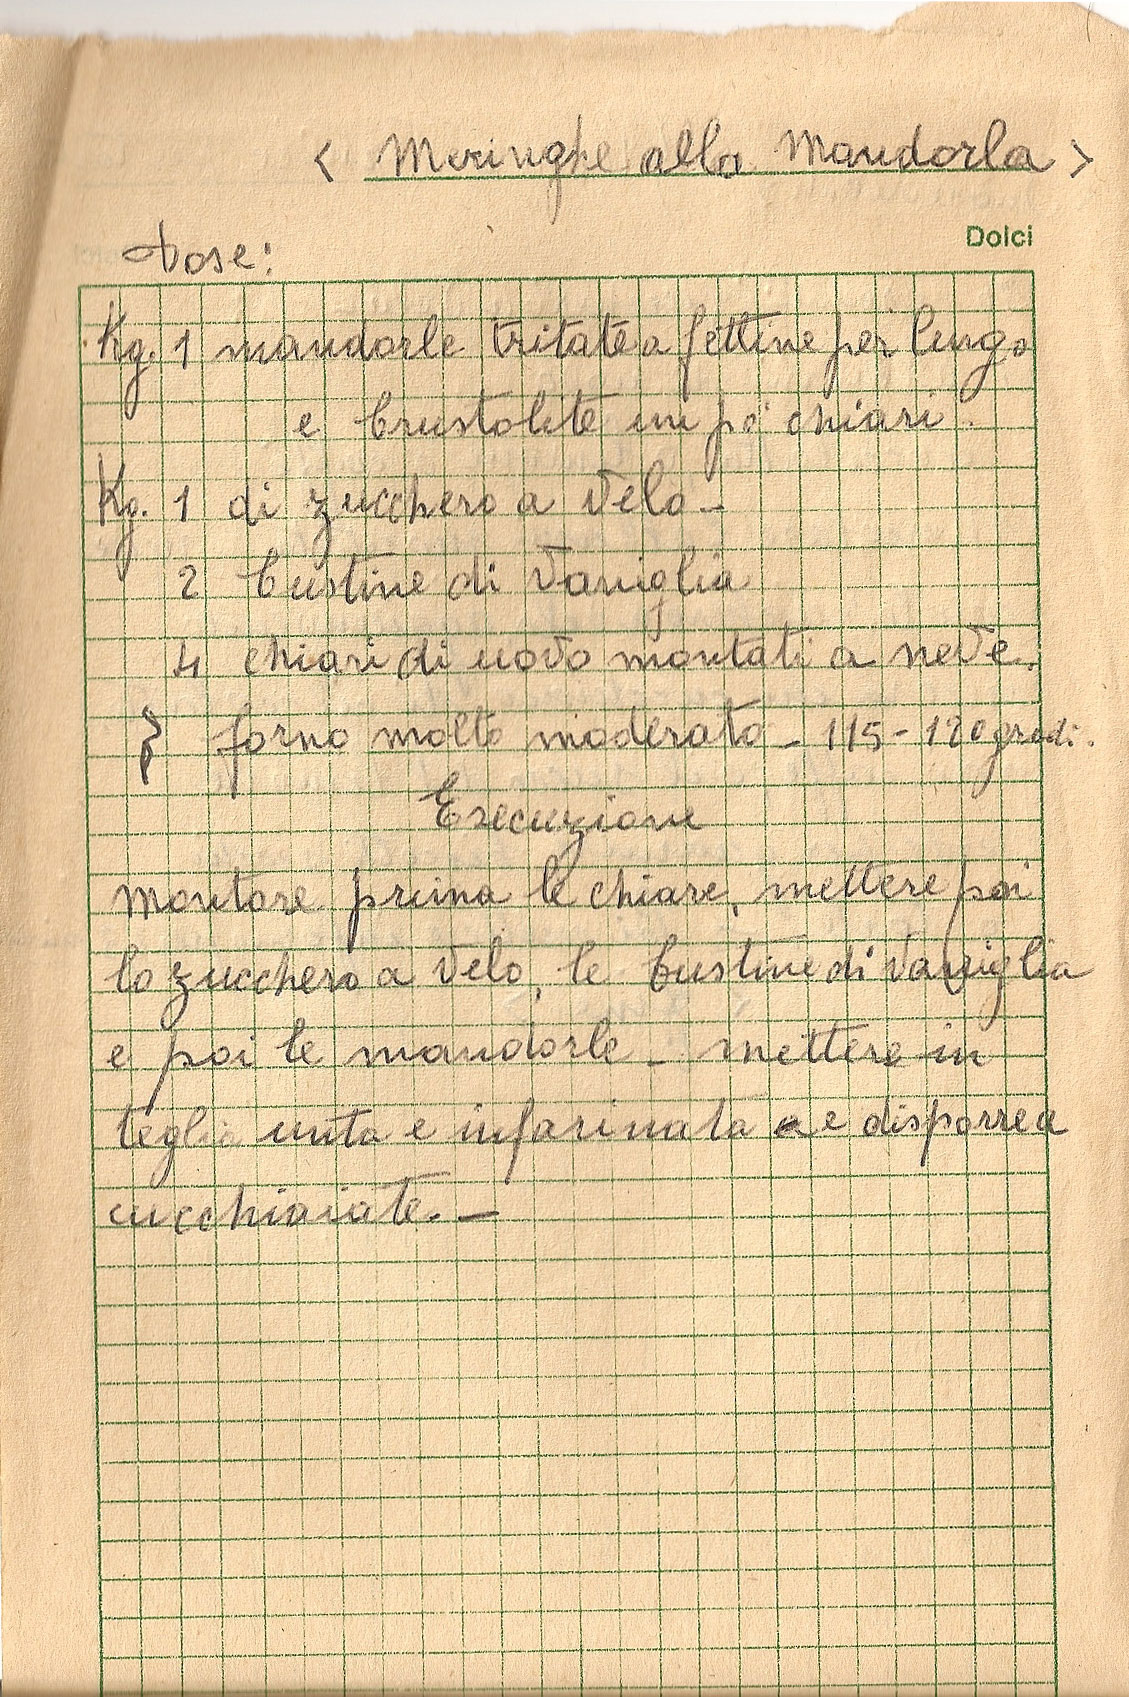 < Meringhe alla Mandorla >
Dolci
Dose:
Kg. 1 mandorle tritate a fettine per lungo
e brustolite un po' chiari.
Kg. 1 di zucchero a velo -
2 bustine di vaniglia
4 chiari di uovo montati a neve.
forno molto moderato - 115-120 gradi.
Esecuzione
montare prima le chiare, mettere poi
lo zucchero a velo, le bustine di vaniglia
e poi le mandorle - mettere in
teglia unta e infarinata e disporre a
cucchiaiate. -